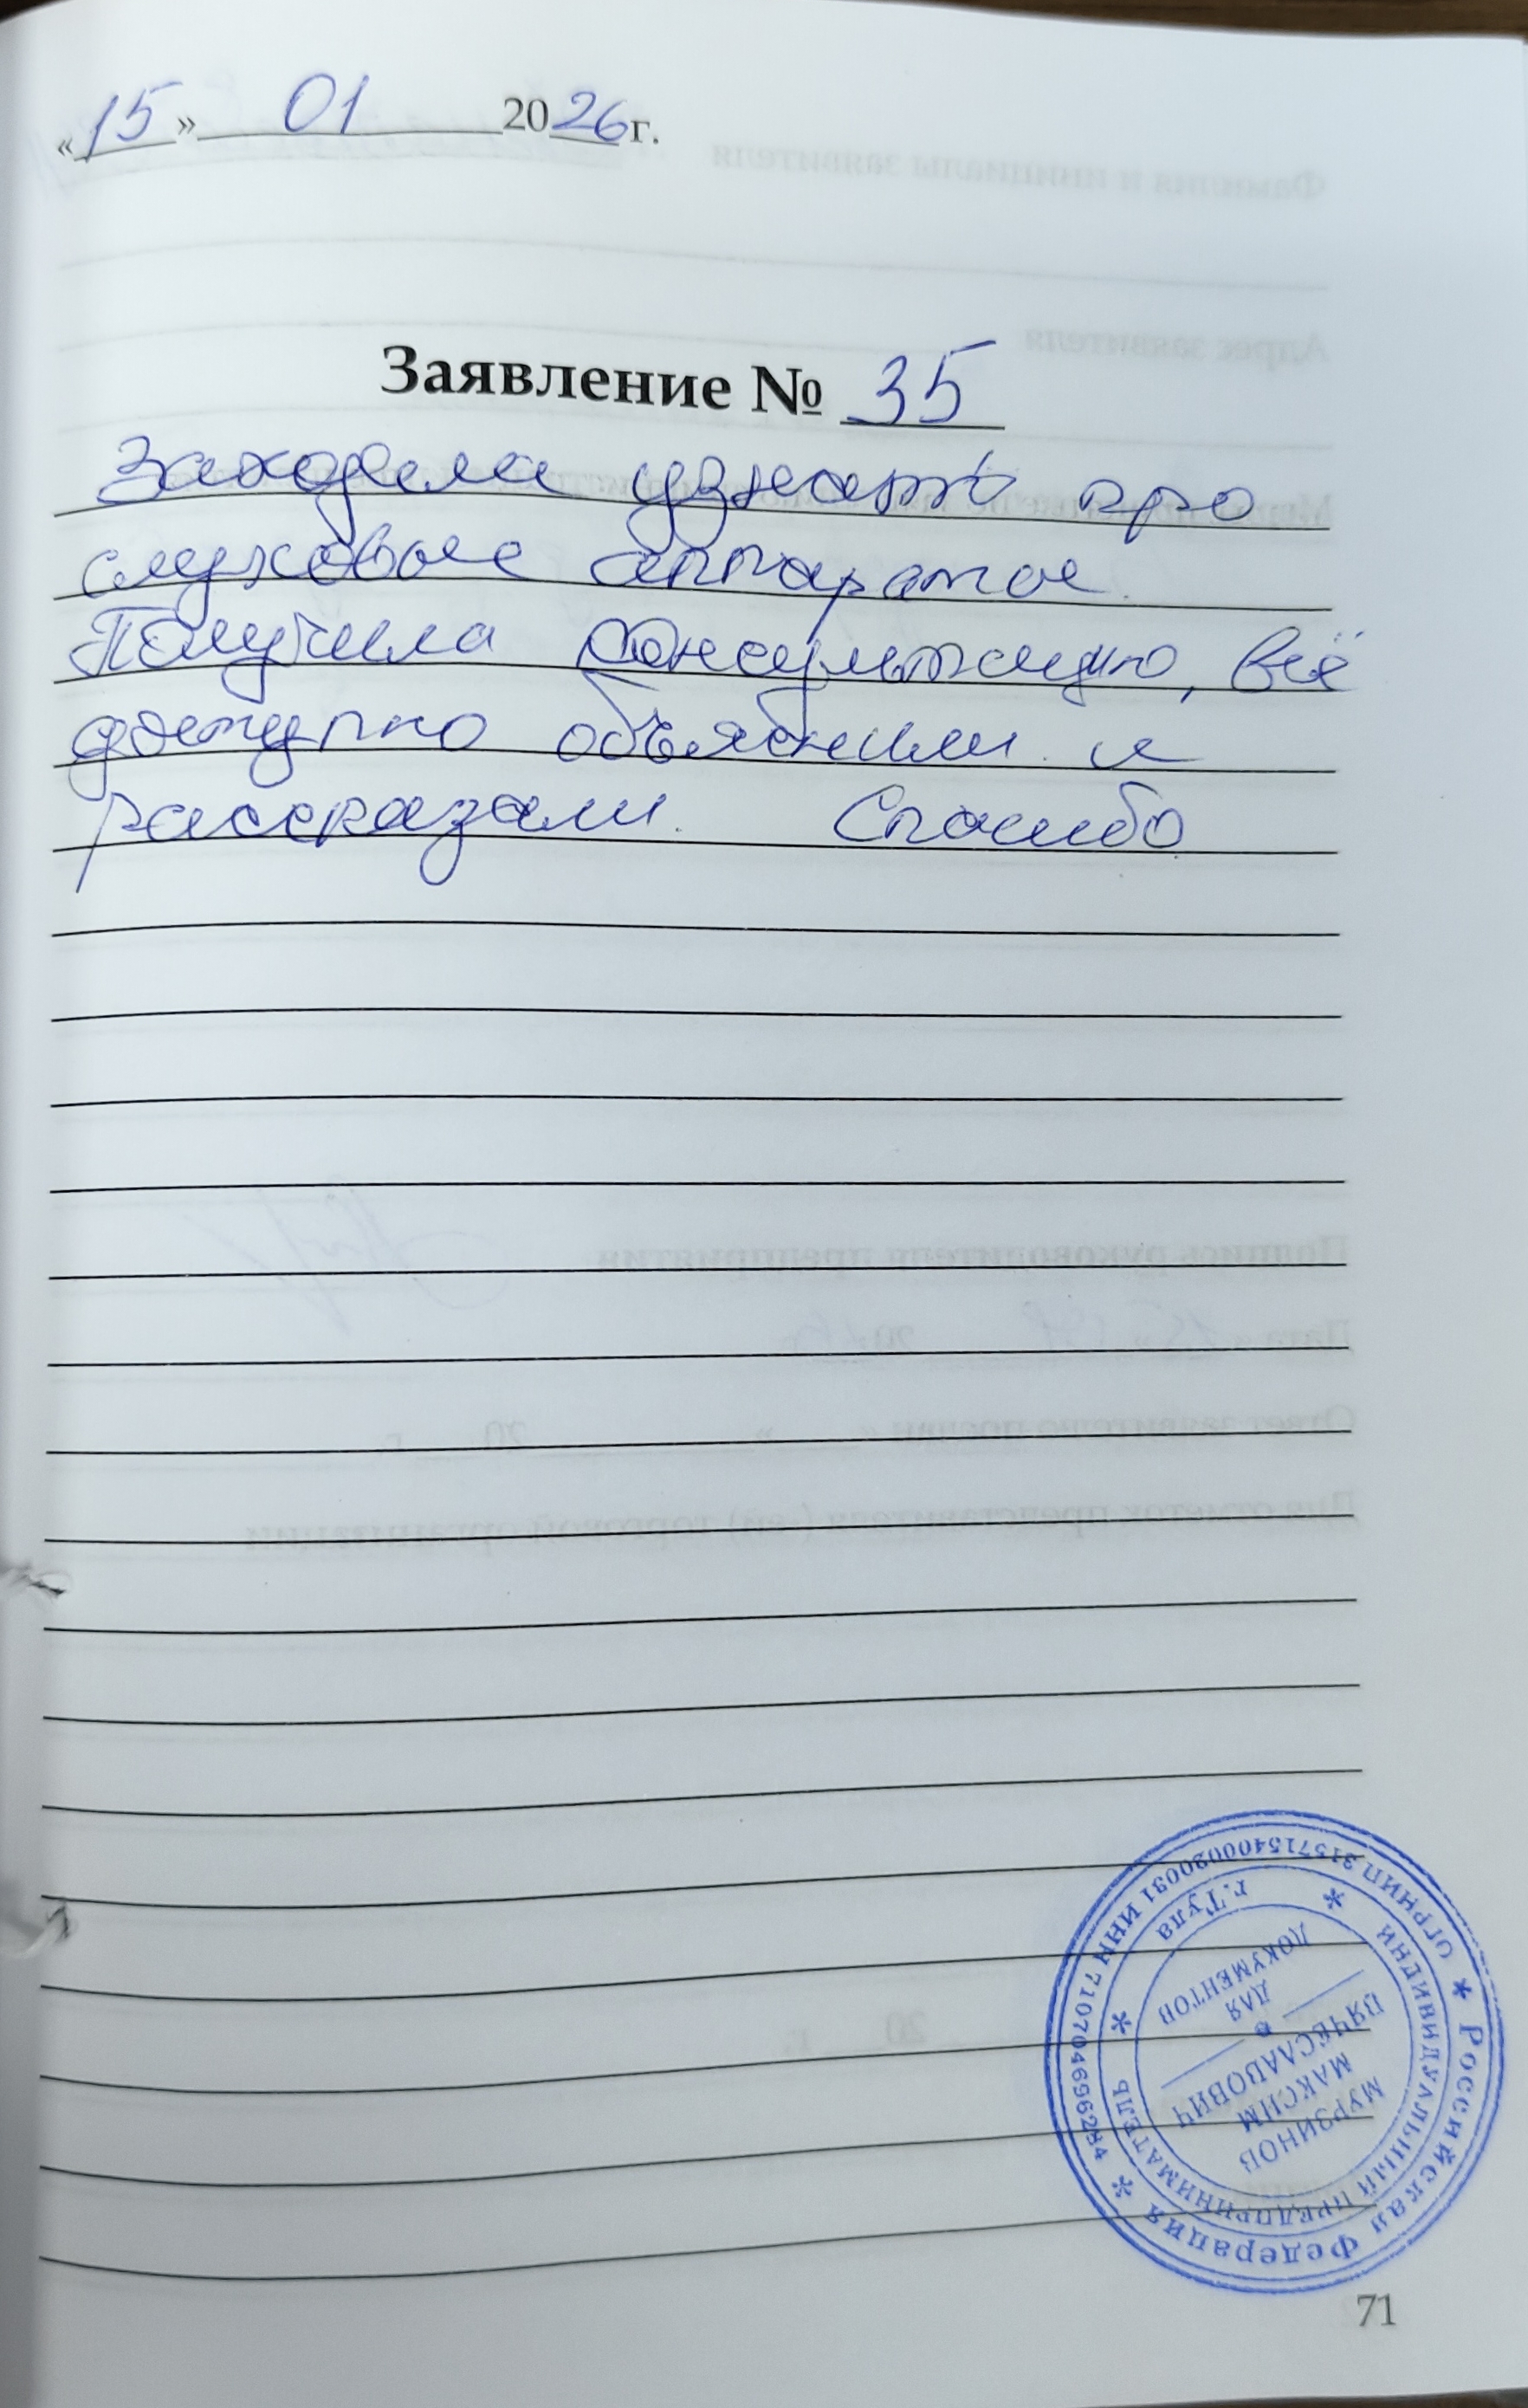 «15» 01 2026г.
Заявление № 35
Заходила узнать про
слуховые аппараты.
Получила консультацию, всё
доступно объяснили и
рассказали. Спасибо
Российская Федерация
ОГРНИП 315715400020031 ИНН 710704696284
ИНДИВИДУАЛЬНЫЙ ПРЕДПРИНИМАТЕЛЬ
г.Тула
МУРЗИНОВ
МАКСИМ
ВЯЧЕСЛАВОВИЧ
ДЛЯ
ДОКУМЕНТОВ
71